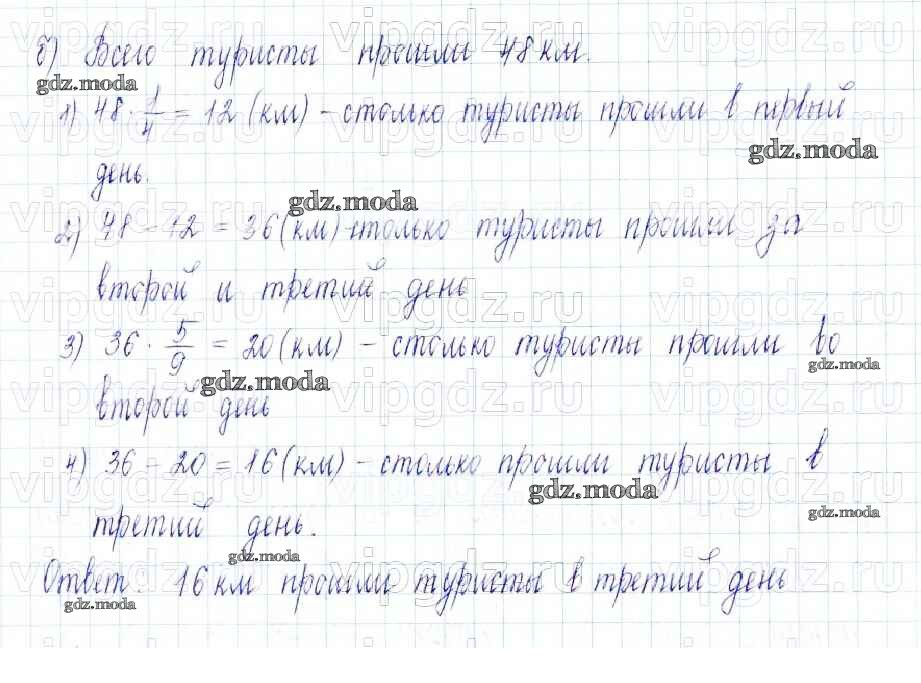 б) Всего туристы прошли 48 км.
gdz.moda
1) 48 · 1/4 = 12 (км) – столько туристы прошли в первый
gdz.moda
день.
gdz.moda
2) 48 – 12 = 36 (км) – столько туристы прошли за
второй и третий день
3) 36 · 5/9 = 20 (км) – столько туристы прошли во
gdz.moda
gdz.moda
второй день
4) 36 – 20 = 16 (км) – столько прошли туристы в
gdz.moda
gdz.moda
третий день.
gdz.moda
Ответ: 16 км прошли туристы в третий день
gdz.moda
vipgdz.ru